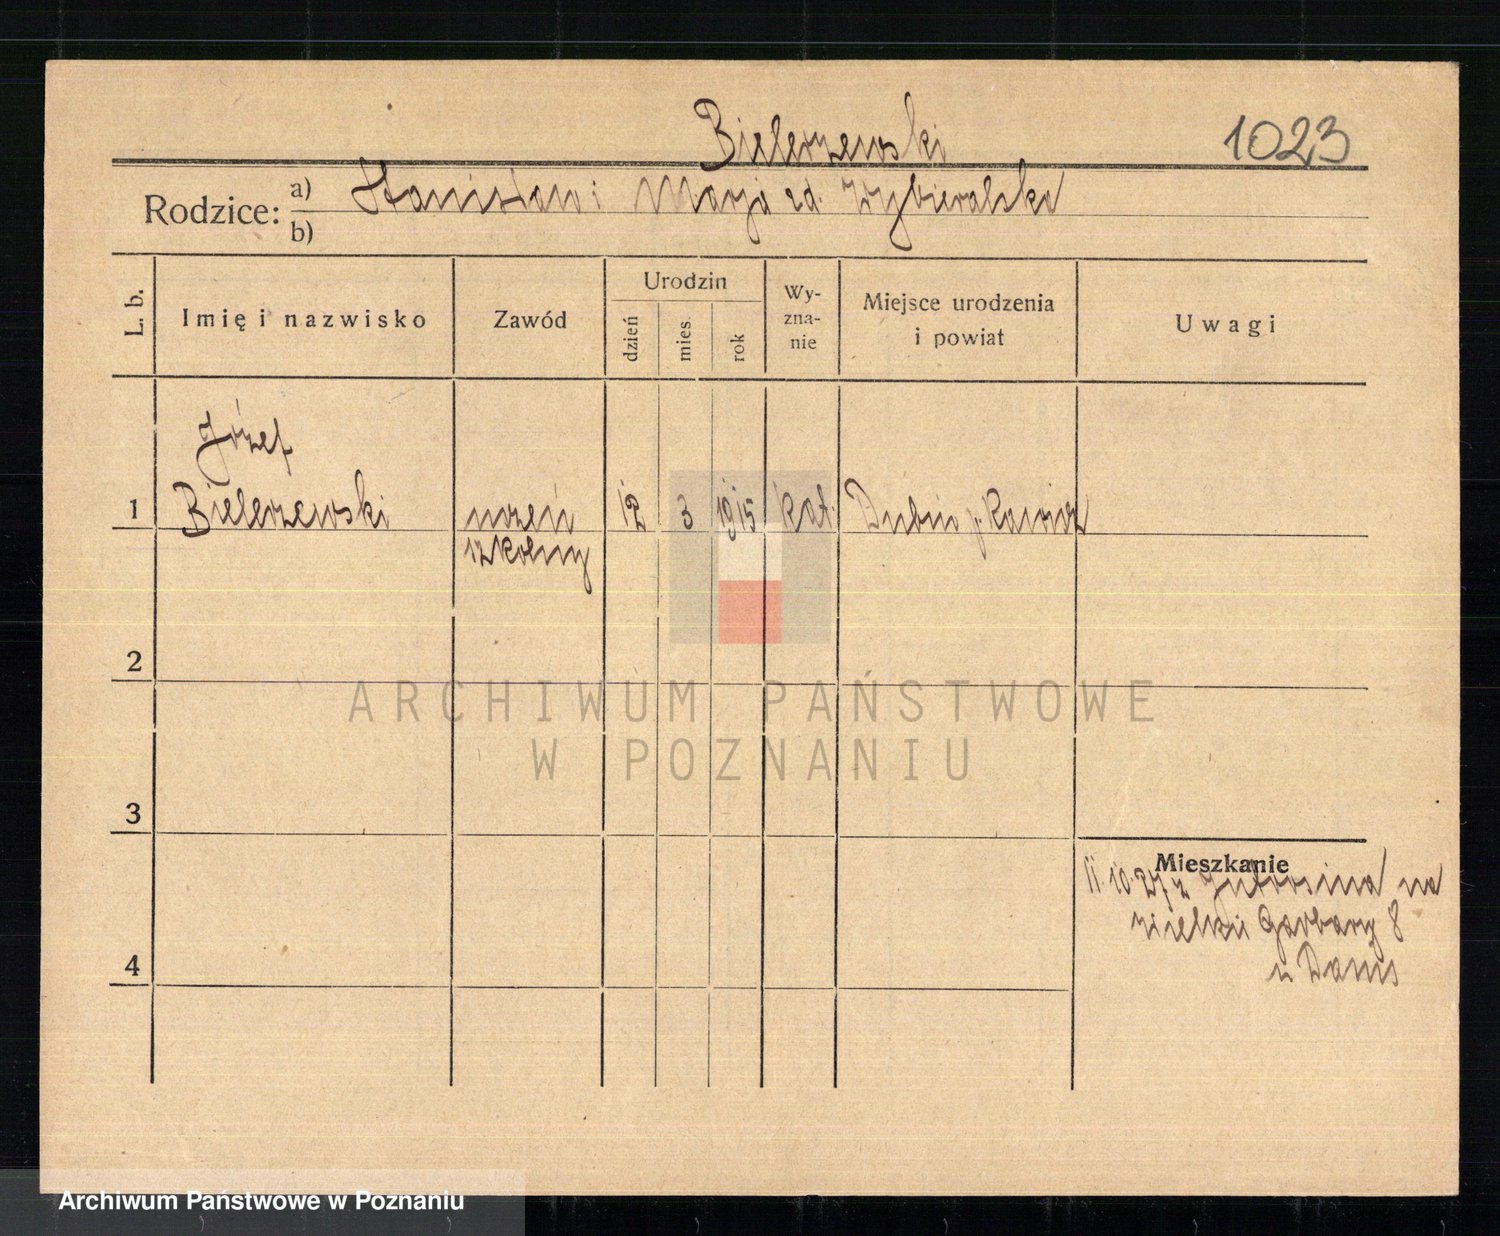 Bielerzewski
1023
Rodzice: a) Stanisław i Marja zd. Wybieralska
b)
L. b.
Imię i nazwisko
Zawód
Urodzin
dzień
mies.
rok
Wy-
zna-
nie
Miejsce urodzenia
i powiat
Uwagi
Józef
1 Bielerzewski uczeń 12 3 1915 kat. Dubin p. Rawicz
szkolny
2
ARCHIWUM PAŃSTWOWE
W POZNANIU
3
Mieszkanie
11.10.27 z Jutrosina na
wielkie Garbary 8
u Danis
4
Archiwum Państwowe w Poznaniu